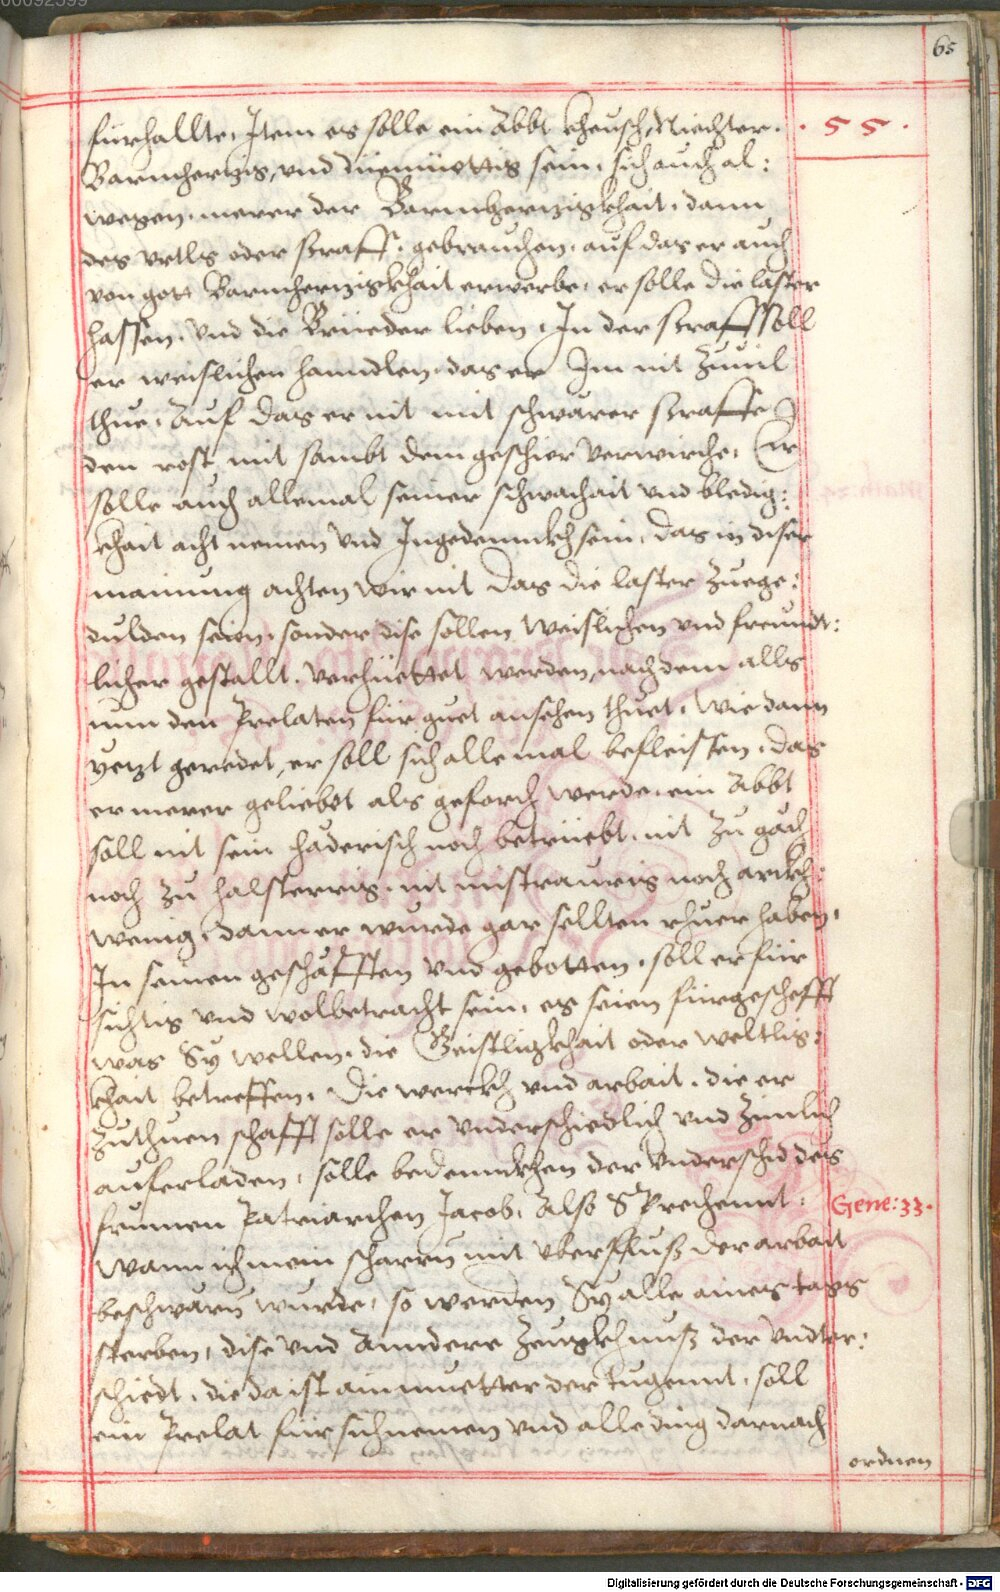 65
· 55 ·
fürhallte, Item es solle ein Abbt kheusch, Niechter,
Barmhertzig, und diemüettig sein, sich auch al:
wegen, merer der Barmhertzigkhait, dann
des urtls oder straff, gebrauchen, auf das er auch
von gott Barmhertzigkhait erwerbe, er solle die laster
hassen, und die Brüeder lieben, In der straff soll
er weislichen handlen, das er Im nit zuuil
thue, Auf das er nit mit schwärer straffe
den rost mit sambt dem geschier verwirche, Er
solle auch allemal seiner schwachait und bledig:
khait acht nemen und Ingedennckh sein, das in diser
mainung achten wir nit das die laster zuege:
dulden seien, sonder dise sollen weislichen und freundt:
licher gestallt, verhüettet werden, nach dem alls
nun den Prelaten für guet ansehen thuet, wie dann
yetzt geredet, er soll sich allemal befleissen, das
er merer geliebt als geforch werde, ein Abbt
soll nit sein haderisch noch betrüebt, nit zu gäch
noch zu halsterrig, nit mistraurig noch arckh:
wenig, dann er wurde gar sellten rhuer haben,
In seinen geschäfften und gebotten, soll er für
sichtig und wolbetracht sein, es seien fürgeschefft
was Sy wellen, die Geistligkhait oder weltlig:
khait betreffen, Die werckh und arbait, die er
zuthuen schafft solle er underschiedlich und zimlich
auferladen, solle bedennckhen der underschid des
frumen Patriarchen Jacob, Also Sprechennt:
Gene: 33.
Wann ich mein scharen mit überfluss der arbait
beschwären wurde, so werden Sy alle aines tags
sterben, dise und Anndere zeugkhnuss der undter:
schiedt, die da ist ain muetter der tugennt, soll
ein Prelat für sich nemen und alle ding darnach
ordnen
Digitalisierung gefördert durch die Deutsche Forschungsgemeinschaft - DFG